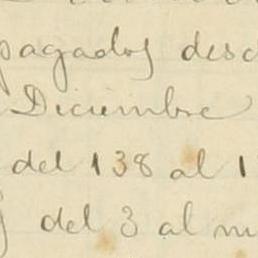 pagados desd
Diciembre
del 138 al 1
del 3 al